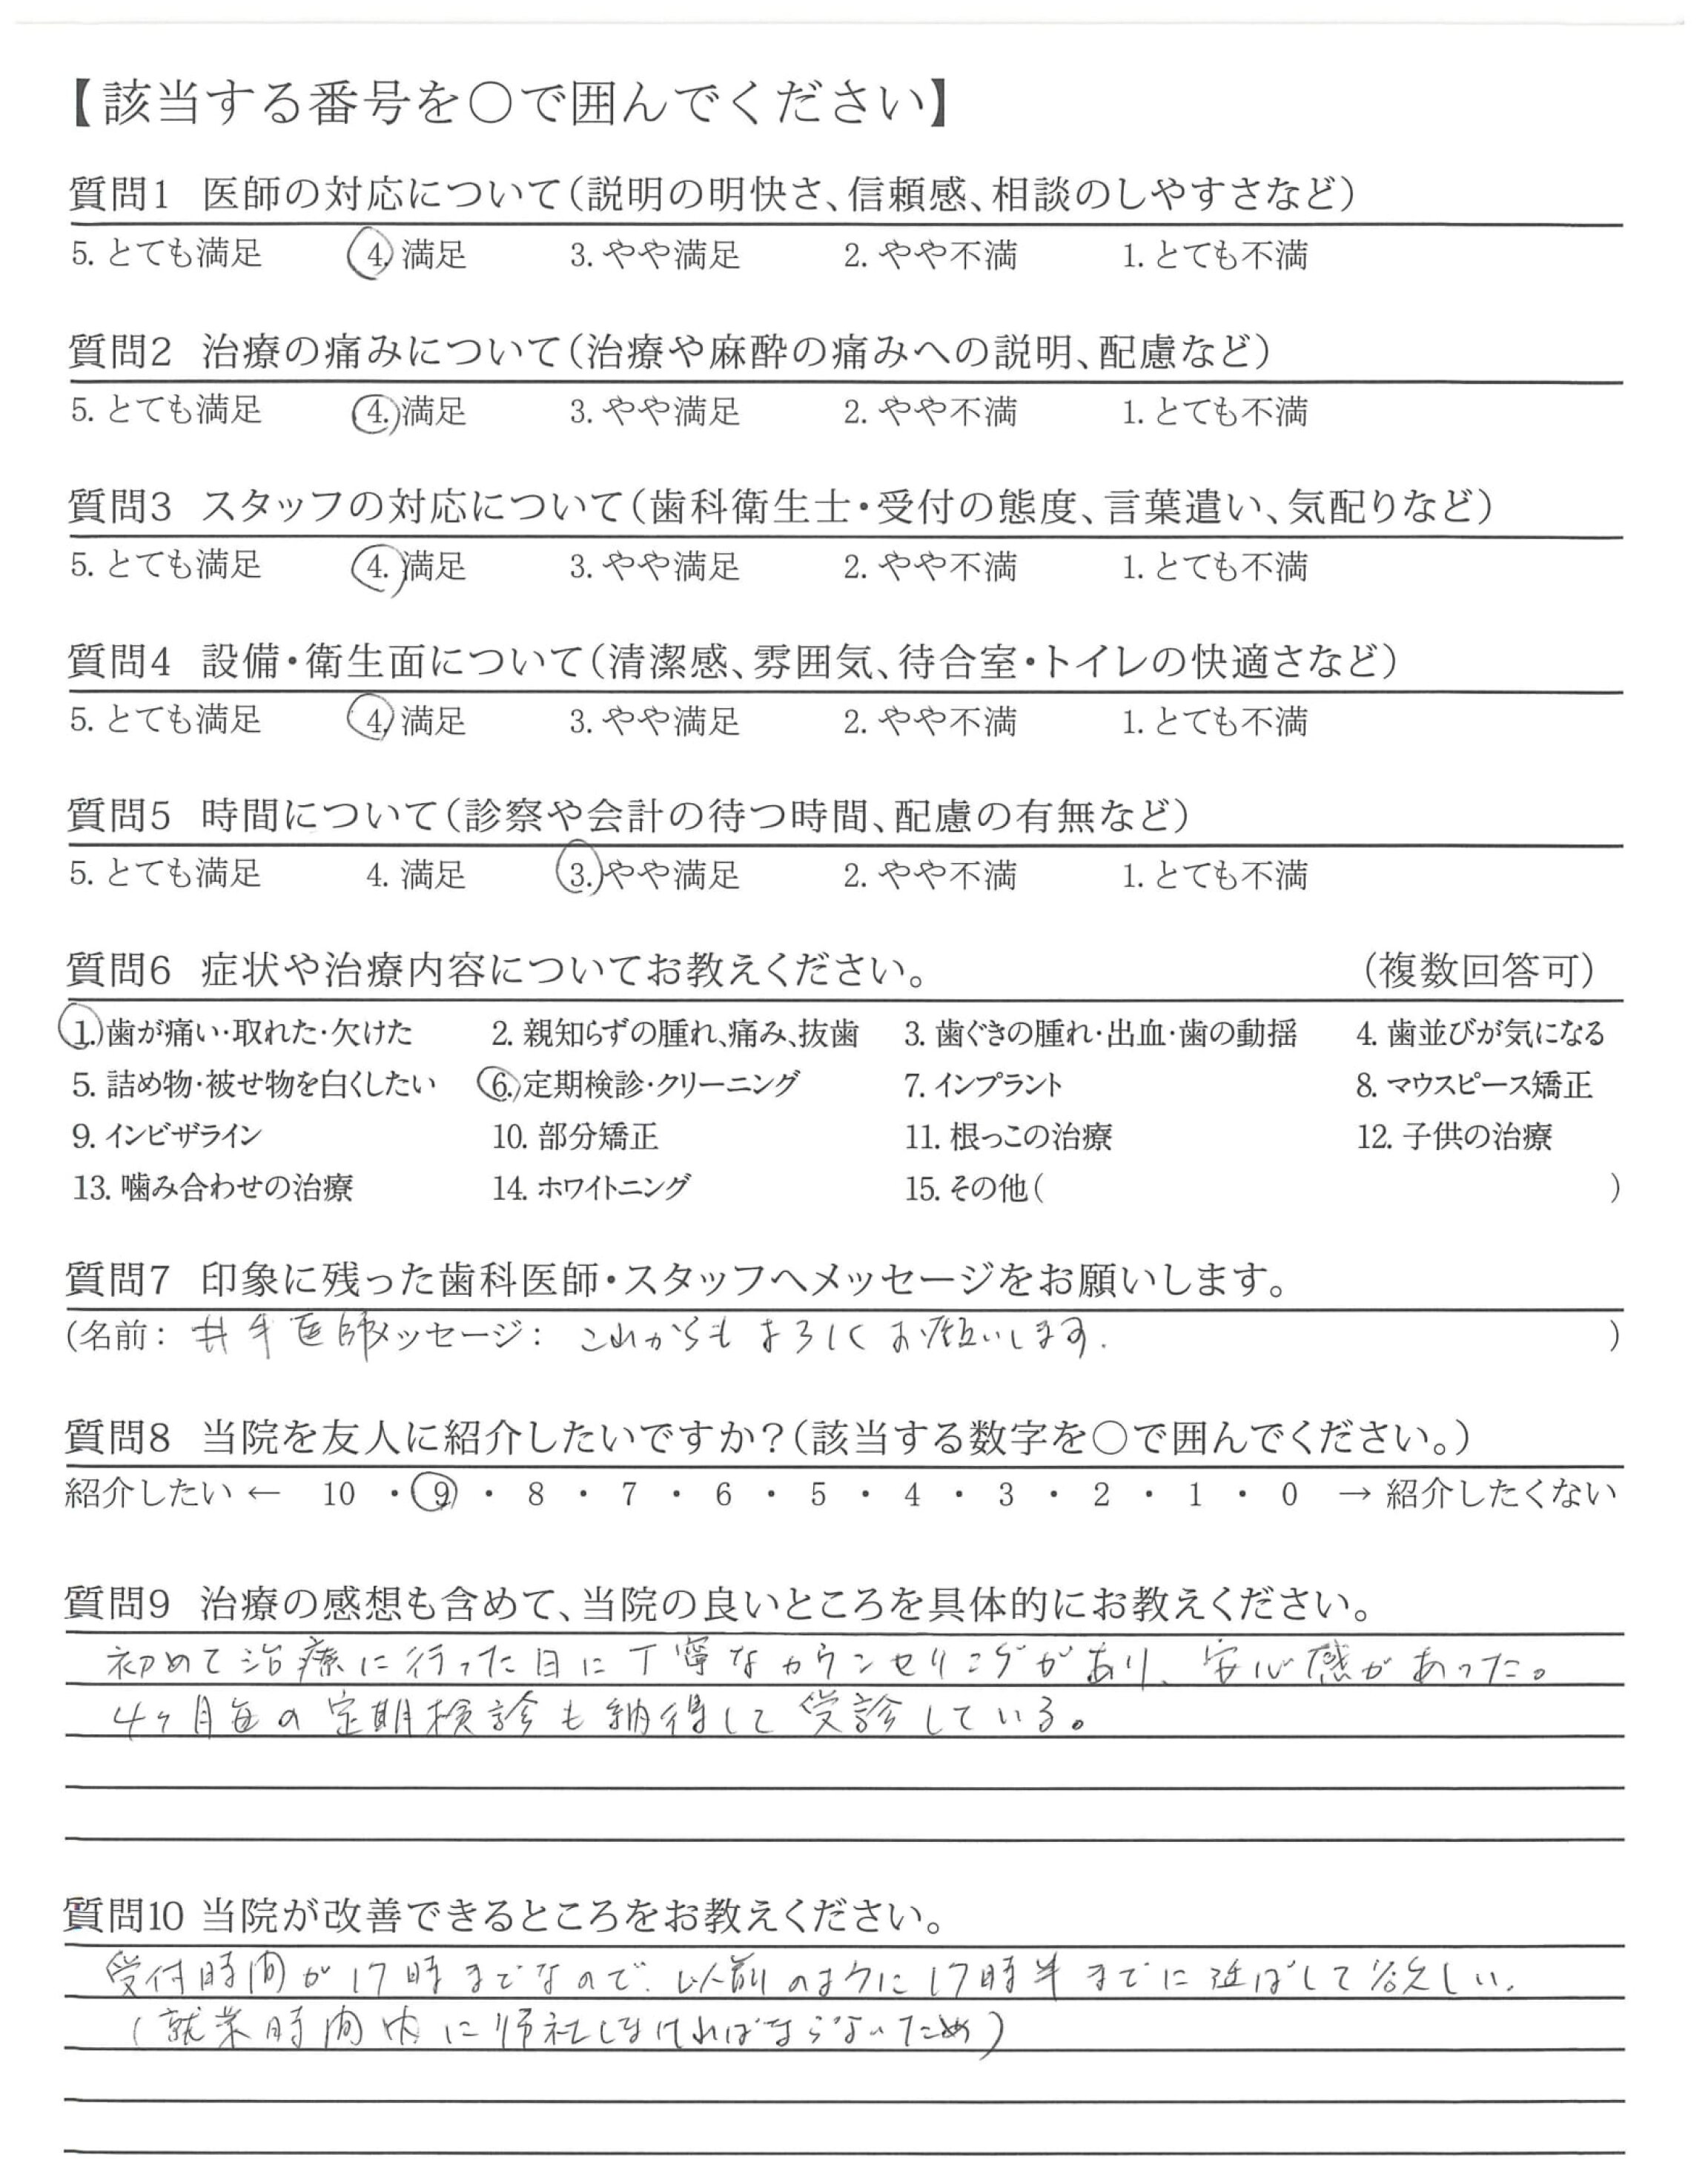 【該当する番号を○で囲んでください】
質問1 医師の対応について(説明の明快さ、信頼感、相談のしやすさなど)
5. とても満足 4. 満足 3. やや満足 2. やや不満 1. とても不満
質問2 治療の痛みについて(治療や麻酔の痛みへの説明、配慮など)
5. とても満足 4. 満足 3. やや満足 2. やや不満 1. とても不満
質問3 スタッフの対応について(歯科衛生士・受付の態度、言葉遣い、気配りなど)
5. とても満足 4. 満足 3. やや満足 2. やや不満 1. とても不満
質問4 設備・衛生面について(清潔感、雰囲気、待合室・トイレの快適さなど)
5. とても満足 4. 満足 3. やや満足 2. やや不満 1. とても不満
質問5 時間について(診察や会計の待つ時間、配慮の有無など)
5. とても満足 4. 満足 3. やや満足 2. やや不満 1. とても不満
質問6 症状や治療内容についてお教えください。 (複数回答可)
1. 歯が痛い・取れた・欠けた 2. 親知らずの腫れ、痛み、抜歯 3. 歯ぐきの腫れ・出血・歯の動揺 4. 歯並びが気になる
5. 詰め物・被せ物を白くしたい 6. 定期検診・クリーニング 7. インプラント 8. マウスピース矯正
9. インビザライン 10. 部分矯正 11. 根っこの治療 12. 子供の治療
13. 噛み合わせの治療 14. ホワイトニング 15. その他( )
質問7 印象に残った歯科医師・スタッフへメッセージをお願いします。
(名前: 井手医師 メッセージ: これからもよろしくお願いします. )
質問8 当院を友人に紹介したいですか?(該当する数字を○で囲んでください。)
紹介したい ← 10 ・ 9 ・ 8 ・ 7 ・ 6 ・ 5 ・ 4 ・ 3 ・ 2 ・ 1 ・ 0 → 紹介したくない
質問9 治療の感想も含めて、当院の良いところを具体的にお教えください。
初めて治療に行った日に丁寧なカウンセリングがあり、安心感があった。
4ヶ月毎の定期検診も納得して受診している。
質問10 当院が改善できるところをお教えください。
受付時間が17時までなので、以前のように17時半までに延ばして欲しい.
(就業時間内に帰社しなければならないため)